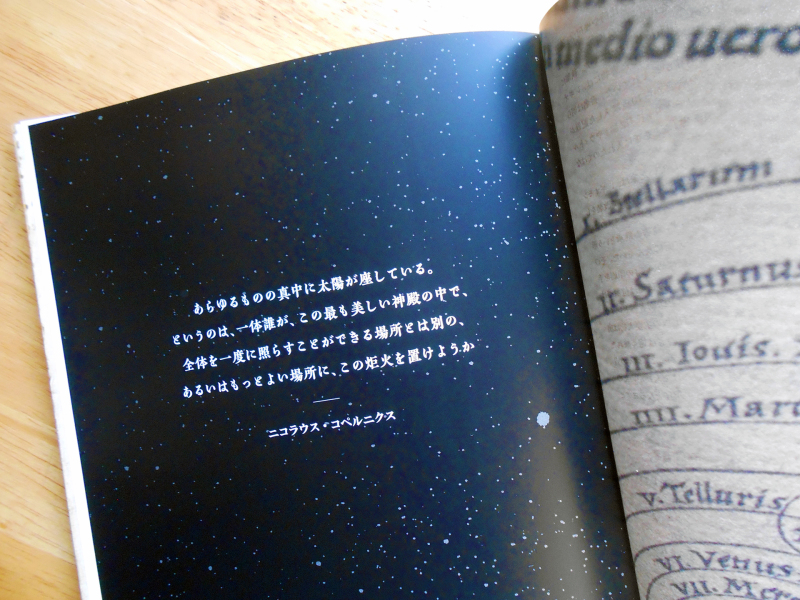 あらゆるものの真中に太陽が座している。
というのは、一体誰が、この最も美しい神殿の中で、
全体を一度に照らすことができる場所とは別の、
あるいはもっとよい場所に、この炬火を置けようか
ニコラウス・コペルニクス
medio uero
I. Stellarum
II. Saturnus
III. Iouis.
IIII. Mart
V. Telluris
VI. Venus
VII. Merc